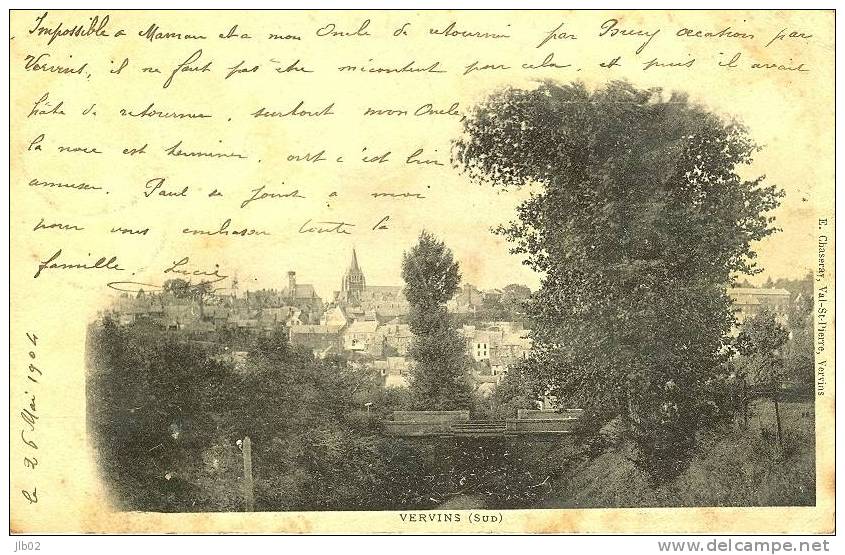 Impossible a Maman et a mon Oncle de retourner par Bucy occasion par
Vervins, il ne faut pas être mécontent pour cela, et puis il avait
hâte de retourner, surtout mon Oncle,
la noce est terminer, on s'est bien
amuser. Paul se joint a moi
pour vous embrasser toute la
famille. Lucie
le 26 Mai 1904
E. Chaseray, Val-St-Pierre, Vervins
VERVINS (SUD)
jlb02
http://www.delcampe.net